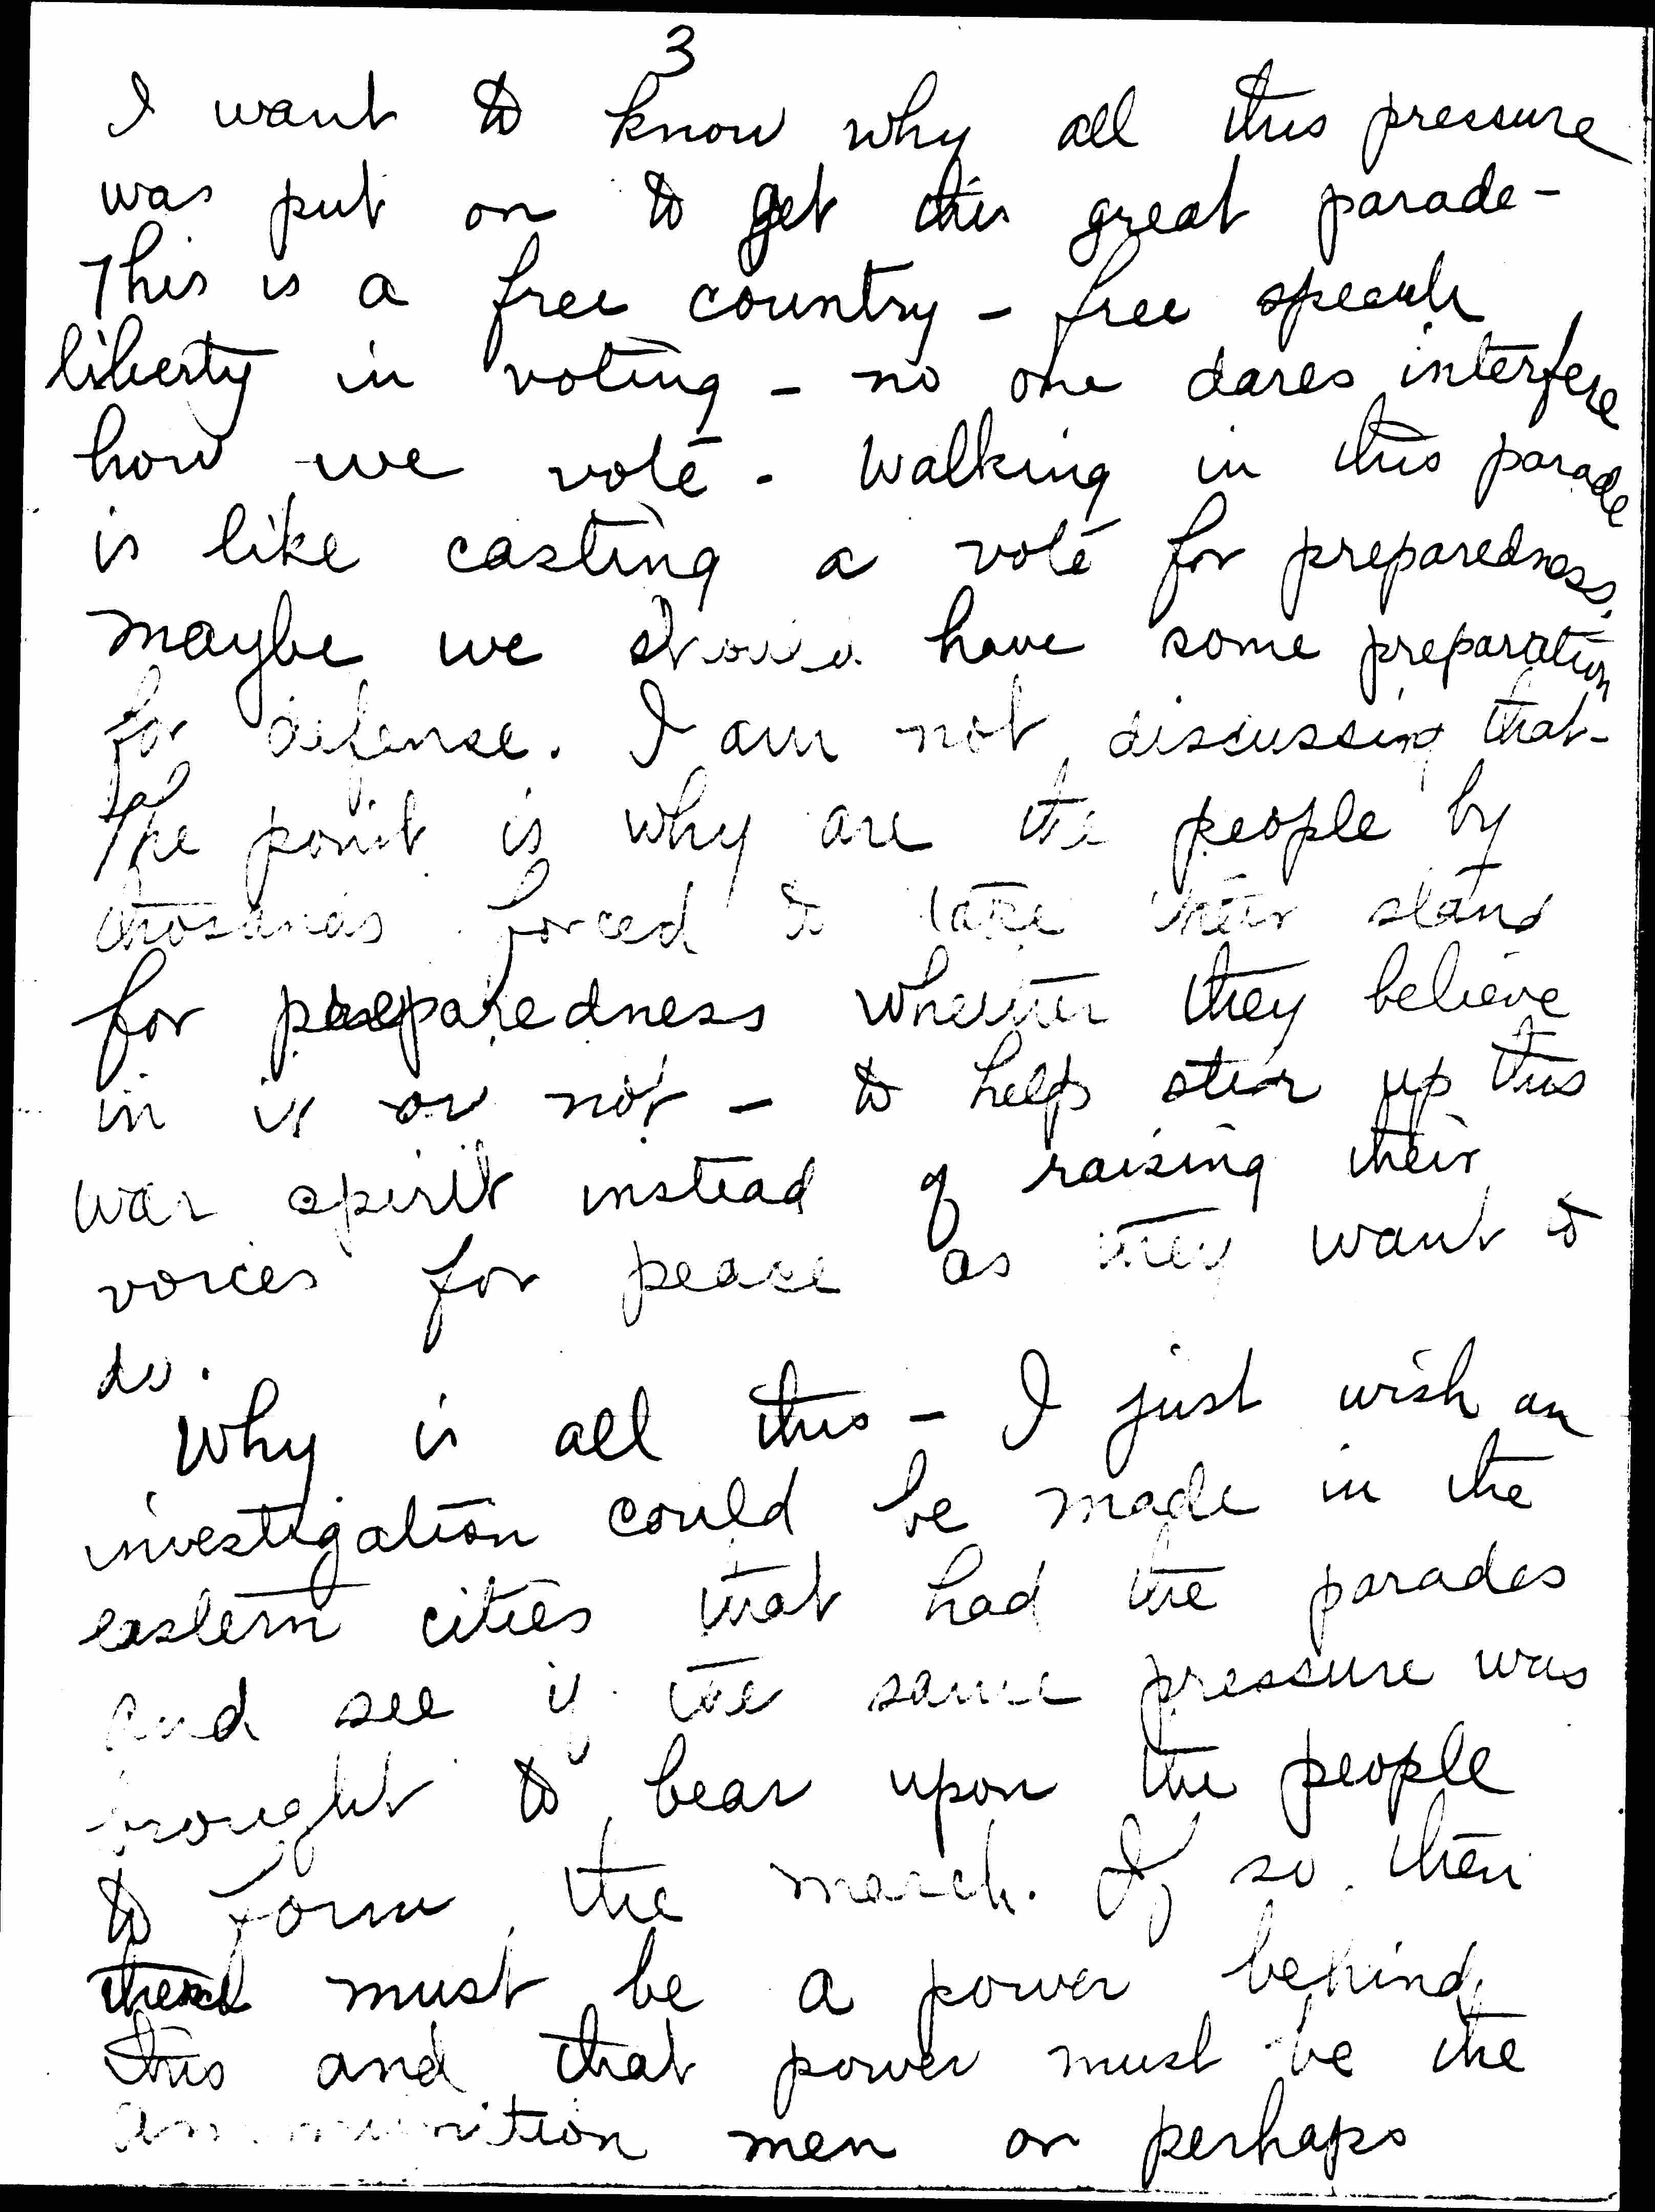 3
I want to know why all this pressure
was put on to get this great parade -
This is a free country - free speech
liberty in voting - no one dares interfere
how we vote. Walking in this parade
is like casting a vote for preparedness.
maybe we should have some preparation
for defense. I am not discussing that -
The point is why are the people by
thosands forced to take their stand
for preparedness whether they believe
in it or not - to help stir up this
war spirit instead of raising their
voices for peace as they want to
do.
Why is all this - I just wish an
investigation could be made in the
eastern cities that had the parades
and see if the same pressure was
brought to bear upon the people
to form the march. If so then
there must be a power behind
this and that power must be the
ammunition men or perhaps